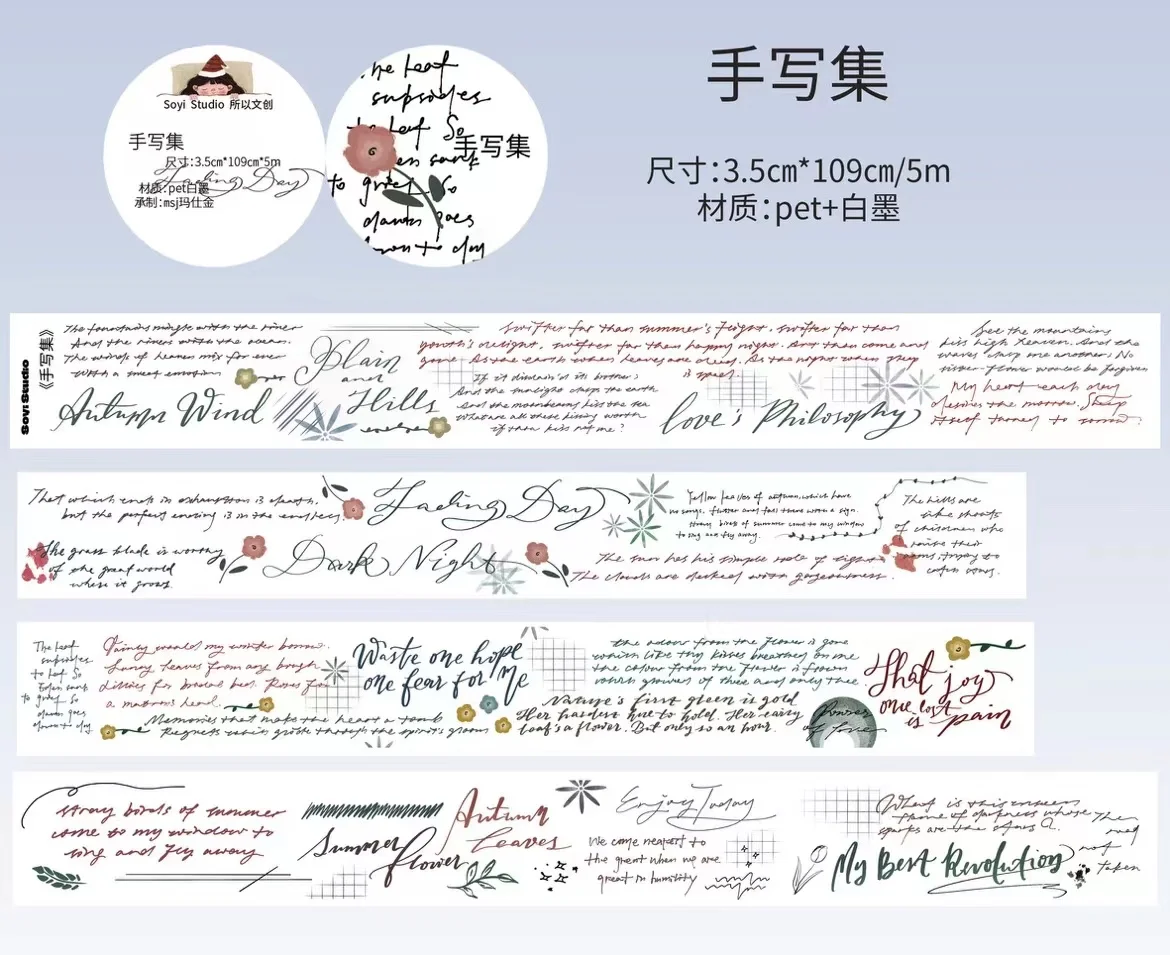 Soyi Studio 所以文创
手写集
尺寸:3.5cm*109cm*5m
Fading Day
材质:pet白墨
承制:msj玛仕金
he leaf
subsides
to leaf So
手写集
en sank
to grief So
dawn goes
down to day
手写集
尺寸:3.5cm*109cm/5m
材质:pet+白墨
Soyi Studio
《手写集》
The fountains mingle with the river
And the rivers with the ocean.
The winds of heaven mix for ever
With a sweet emotion
Autumn Wind
Plain
and
Hills
swifter far than summer's flight, swifter far than
youth's delight, swifter far than happy night. Art thou come and
gone. As the earth when leaves are dead, As the night when sleep
is sped.
If it disdain'd its brother;
And the sunlight clasps the earth
And the moonbeams kiss the sea
What are all these kissing worth
if thou kiss not me?
love's Philosophy
See the mountains
kiss high heaven. And the
waves clasp one another; No
sister-flower would be forgiven
My heart each day
desires the morrow. Sleep
itself turned to sorrow.
That which ends in exhaustion is death,
but the perfect ending is in the endless.
The grass blade is worthy
of the great world
where it grows.
Fading Day
Dark Night
Yellow leaves of autumn, which have
no songs, flutter and fall there with a sign.
Stray birds of summer come to my window
to sing and fly away.
The sun has his simple robe of light.
The clouds are decked with gorgeousness.
The hills are
like shouts
of children who
raise their
arms, trying to
catch stars.
The leaf
subsides
to leaf So
Eden sank
to grief So
dawn goes
down to day
Vainly would my winter borrow
Sunny leaves from any bough
Lillies for bridal bed. Roses for
a matrons head.
Memories that make the heart a tomb
Regrets which glide through the spirit's gloom
Waste one hope
one fear for Me
the odour from the flower is gone
which like thy kisses breathed on me
the colour from the flower is flown
which glowed of thee and only thee
Nature's first green is gold
Her hardest hue to hold. Her early
leaf's a flower. But only so an hour.
Power
of love
That joy
once lost
is pain
stray birds of summer
come to my window to
sing and fly away
Summer
flower
Autumn
leaves
Enjoy Today
We come nearest to
the great when we are
great in humility
What is this unseen
flame of darkness whose
sparks are the stars?
The
road
not
taken
My Best Revolution